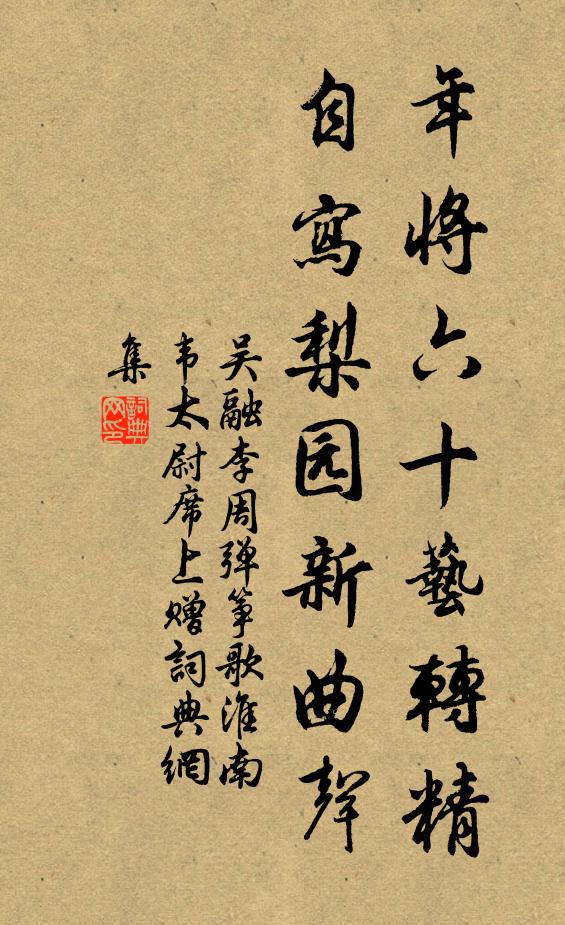 年将六十藝轉精
自寫梨园新曲聲
吴融李周弹筝歌淮南
韦太尉席上赠詞典網
集
詞典
网印